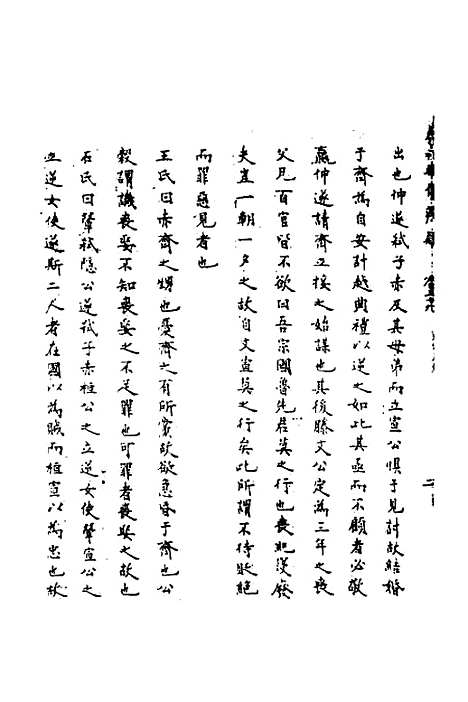 出也仲遂弒子赤及其母弟而立宣公懼于見討故結婚
于齊為自安計越典禮以逆之如此其亟而不顧者必敬
嬴仲遂請齊立接之始謀也其後滕文公定為三年之喪
父兄百官皆不欲曰吾宗國魯先君莫之行也喪紀浸廢
夫豈一朝一夕之故自文宣莫之行矣此所謂不待貶絕
而罪惡見者也
王氏曰赤齊之甥也憂齊之有所實故欲急昏于齊也公
穀謂譏喪娶不知喪娶之不足罪也可罪者喪娶之故也
石氏曰翬弒隱公遂弒子赤桓公之立逆女使翬宣公之
立逆女使遂斯二人者在國以為賊而桓宣以為忠也故